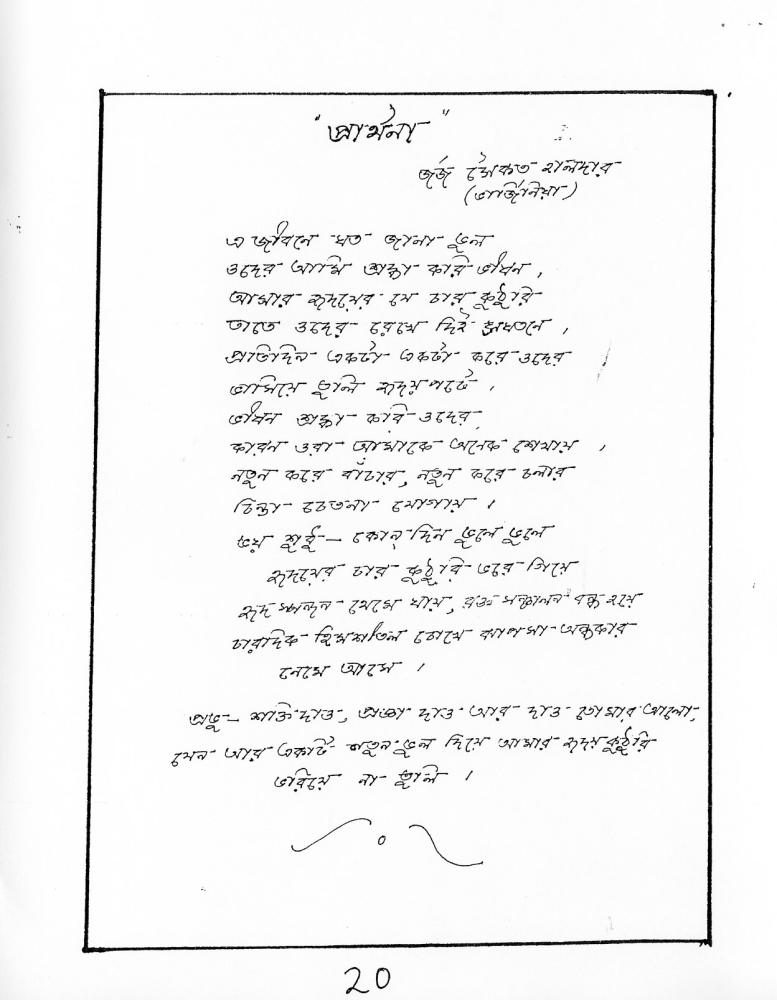 "প্রার্থনা"
জর্জ সৈকত হালদার
(ভার্জিনিয়া)
এ জীবনে যত জানা ভুল
ওদের আমি শ্রদ্ধা করি ভীষন,
আমার হৃদয়ের যে চার কুঠুরি
তাতে ওদের রেখে দিই সযতনে,
প্রতিদিন একটা একটা করে ওদের
ভাসিয়ে তুলি হৃদয় পটে,
ভীষন শ্রদ্ধা করি ওদের
কারন ওরা আমাকে অনেক শেখায়,
নতুন করে বাঁচার, নতুন করে চলার
চিন্তা চেতনা যোগায়।
ভয় শুধু – কোন দিন ভুলে ভুলে
হৃদয়ের চার কুঠুরি ভরে গিয়ে
হৃদ স্পন্দন থেমে যায়, রক্ত সঞ্চালন বন্ধ হয়ে
চারদিক হিমশীতল চোখে ঝাপসা অন্ধকার
নেমে আসে।
প্রভু – শক্তি দাও, প্রজ্ঞা দাও আর দাও তোমার আলো,
যেন আর একটি নতুন ভুল দিয়ে আমার হৃদয় কুঠুরি
ভরিয়ে না তুলি।
20